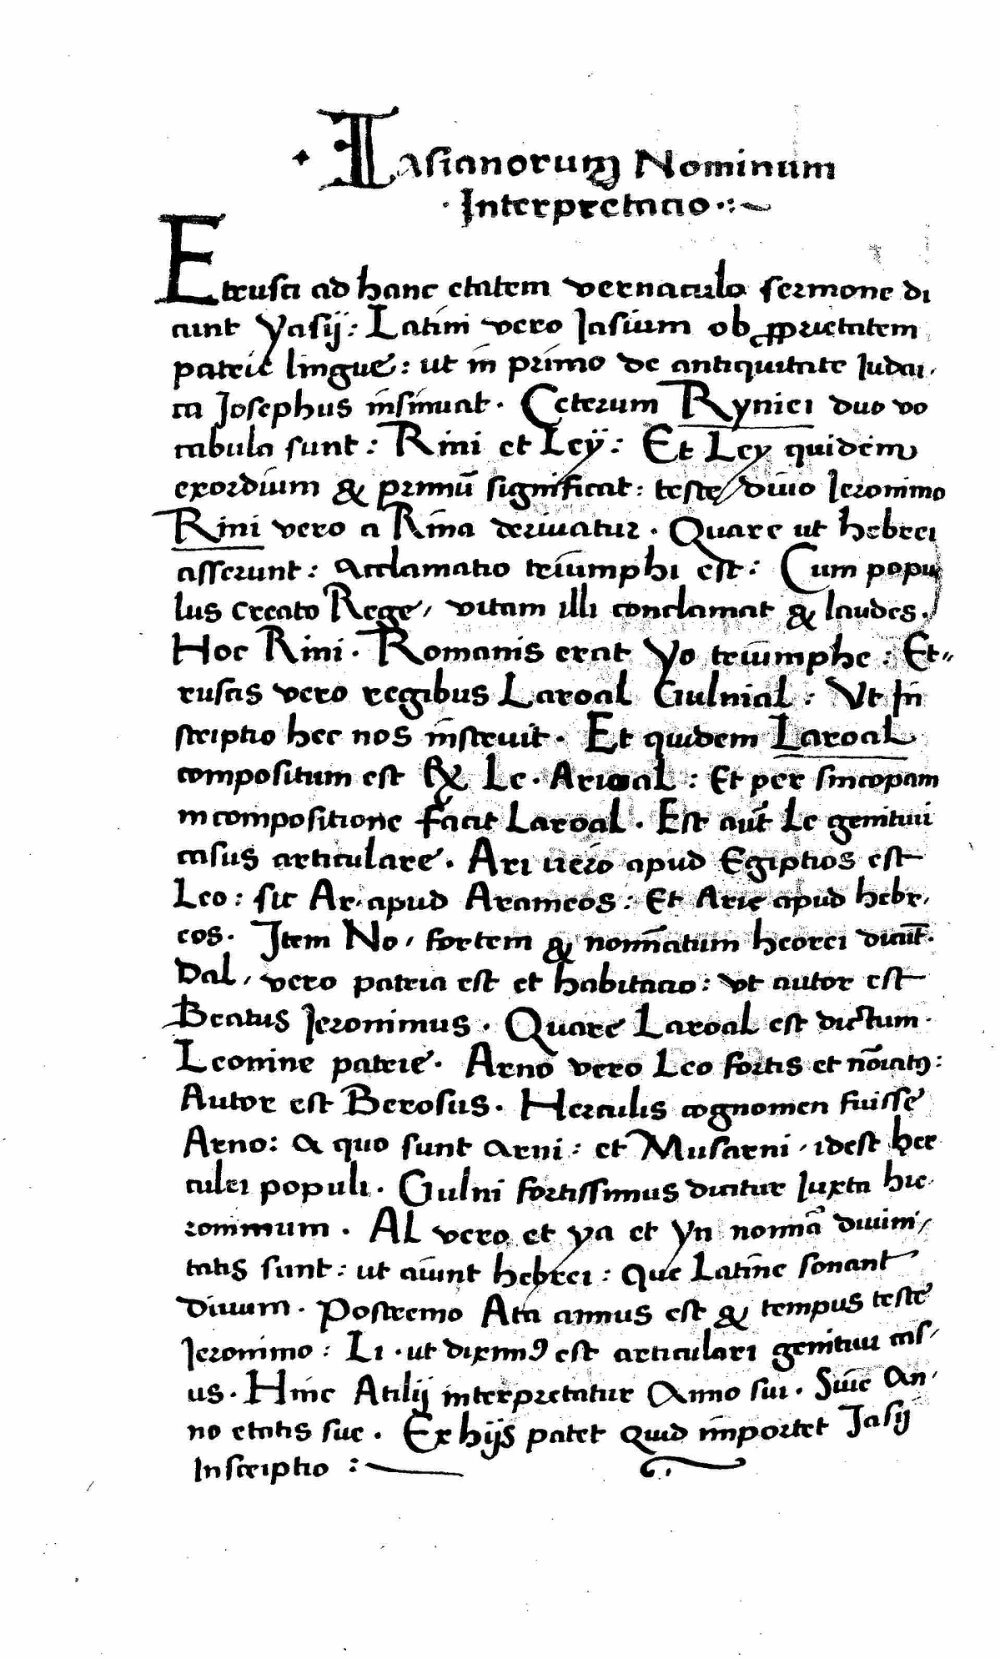 Iasianorum Nominum
Interpretacio
Etrusci ad hanc etatem vernaculo sermone di
cunt yasij: Latini vero Iasium ob ꝓprietatem
patrie lingue: ut in primo de antiquitate Iudai
ca Josephus insinuat. Ceterum Rynici duo vo
cabula sunt: Rini et Ley: Et Ley quidem
exordium & primū significat: teste divo Jeronimo
Rini vero a Rina derivatur. Quare ut hebrei
asserunt: acclamatio triumphi est: Cum popu
lus creato Rege, vitam illi conclamat & laudes.
Hoc Rini. Romanis erat yo triumphe: Et
ruscis vero regibus Laroal Gulnial: Ut In
scriptio hec nos instruit. Et quidem Laroal
compositum est Ex Le. Arioal: Et per sincopam
in compositione facit Laroal. Est aūt Le genitivi
casus articulare. Ari vero apud Egiptios est
Leo: sic Ar. apud Arameos: Et Arie apud hebr
eos. Item No, fortem & nominatum hebrei dicūt.
Dal, vero patria est et habitacio: ut autor est
Beatus Jeronimus. Quare Laroal est dictum.
Leonine patrie. Arno vero Leo fortis et nōiatꝰ:
Autor est Berosus. Herculis cognomen fuisse
Arno: a quo sunt Arni: et Musarni. idest her
culei populi. Gulni fortissimus dicitur Iuxta hie
ronimum. AL vero et ya et yn nominā divini
tatis sunt: ut aiunt hebrei: que Latine sonant
Divum. Postremo Ata annus est & tempus teste
Jeronimo: Li. ut diximꝰ est articulari genitivi cas
us. Hinc Atilij interpretatur Anno sui. Sive An
no etatis sue. Ex hijs patet quid importet Jasij
Inscriptio